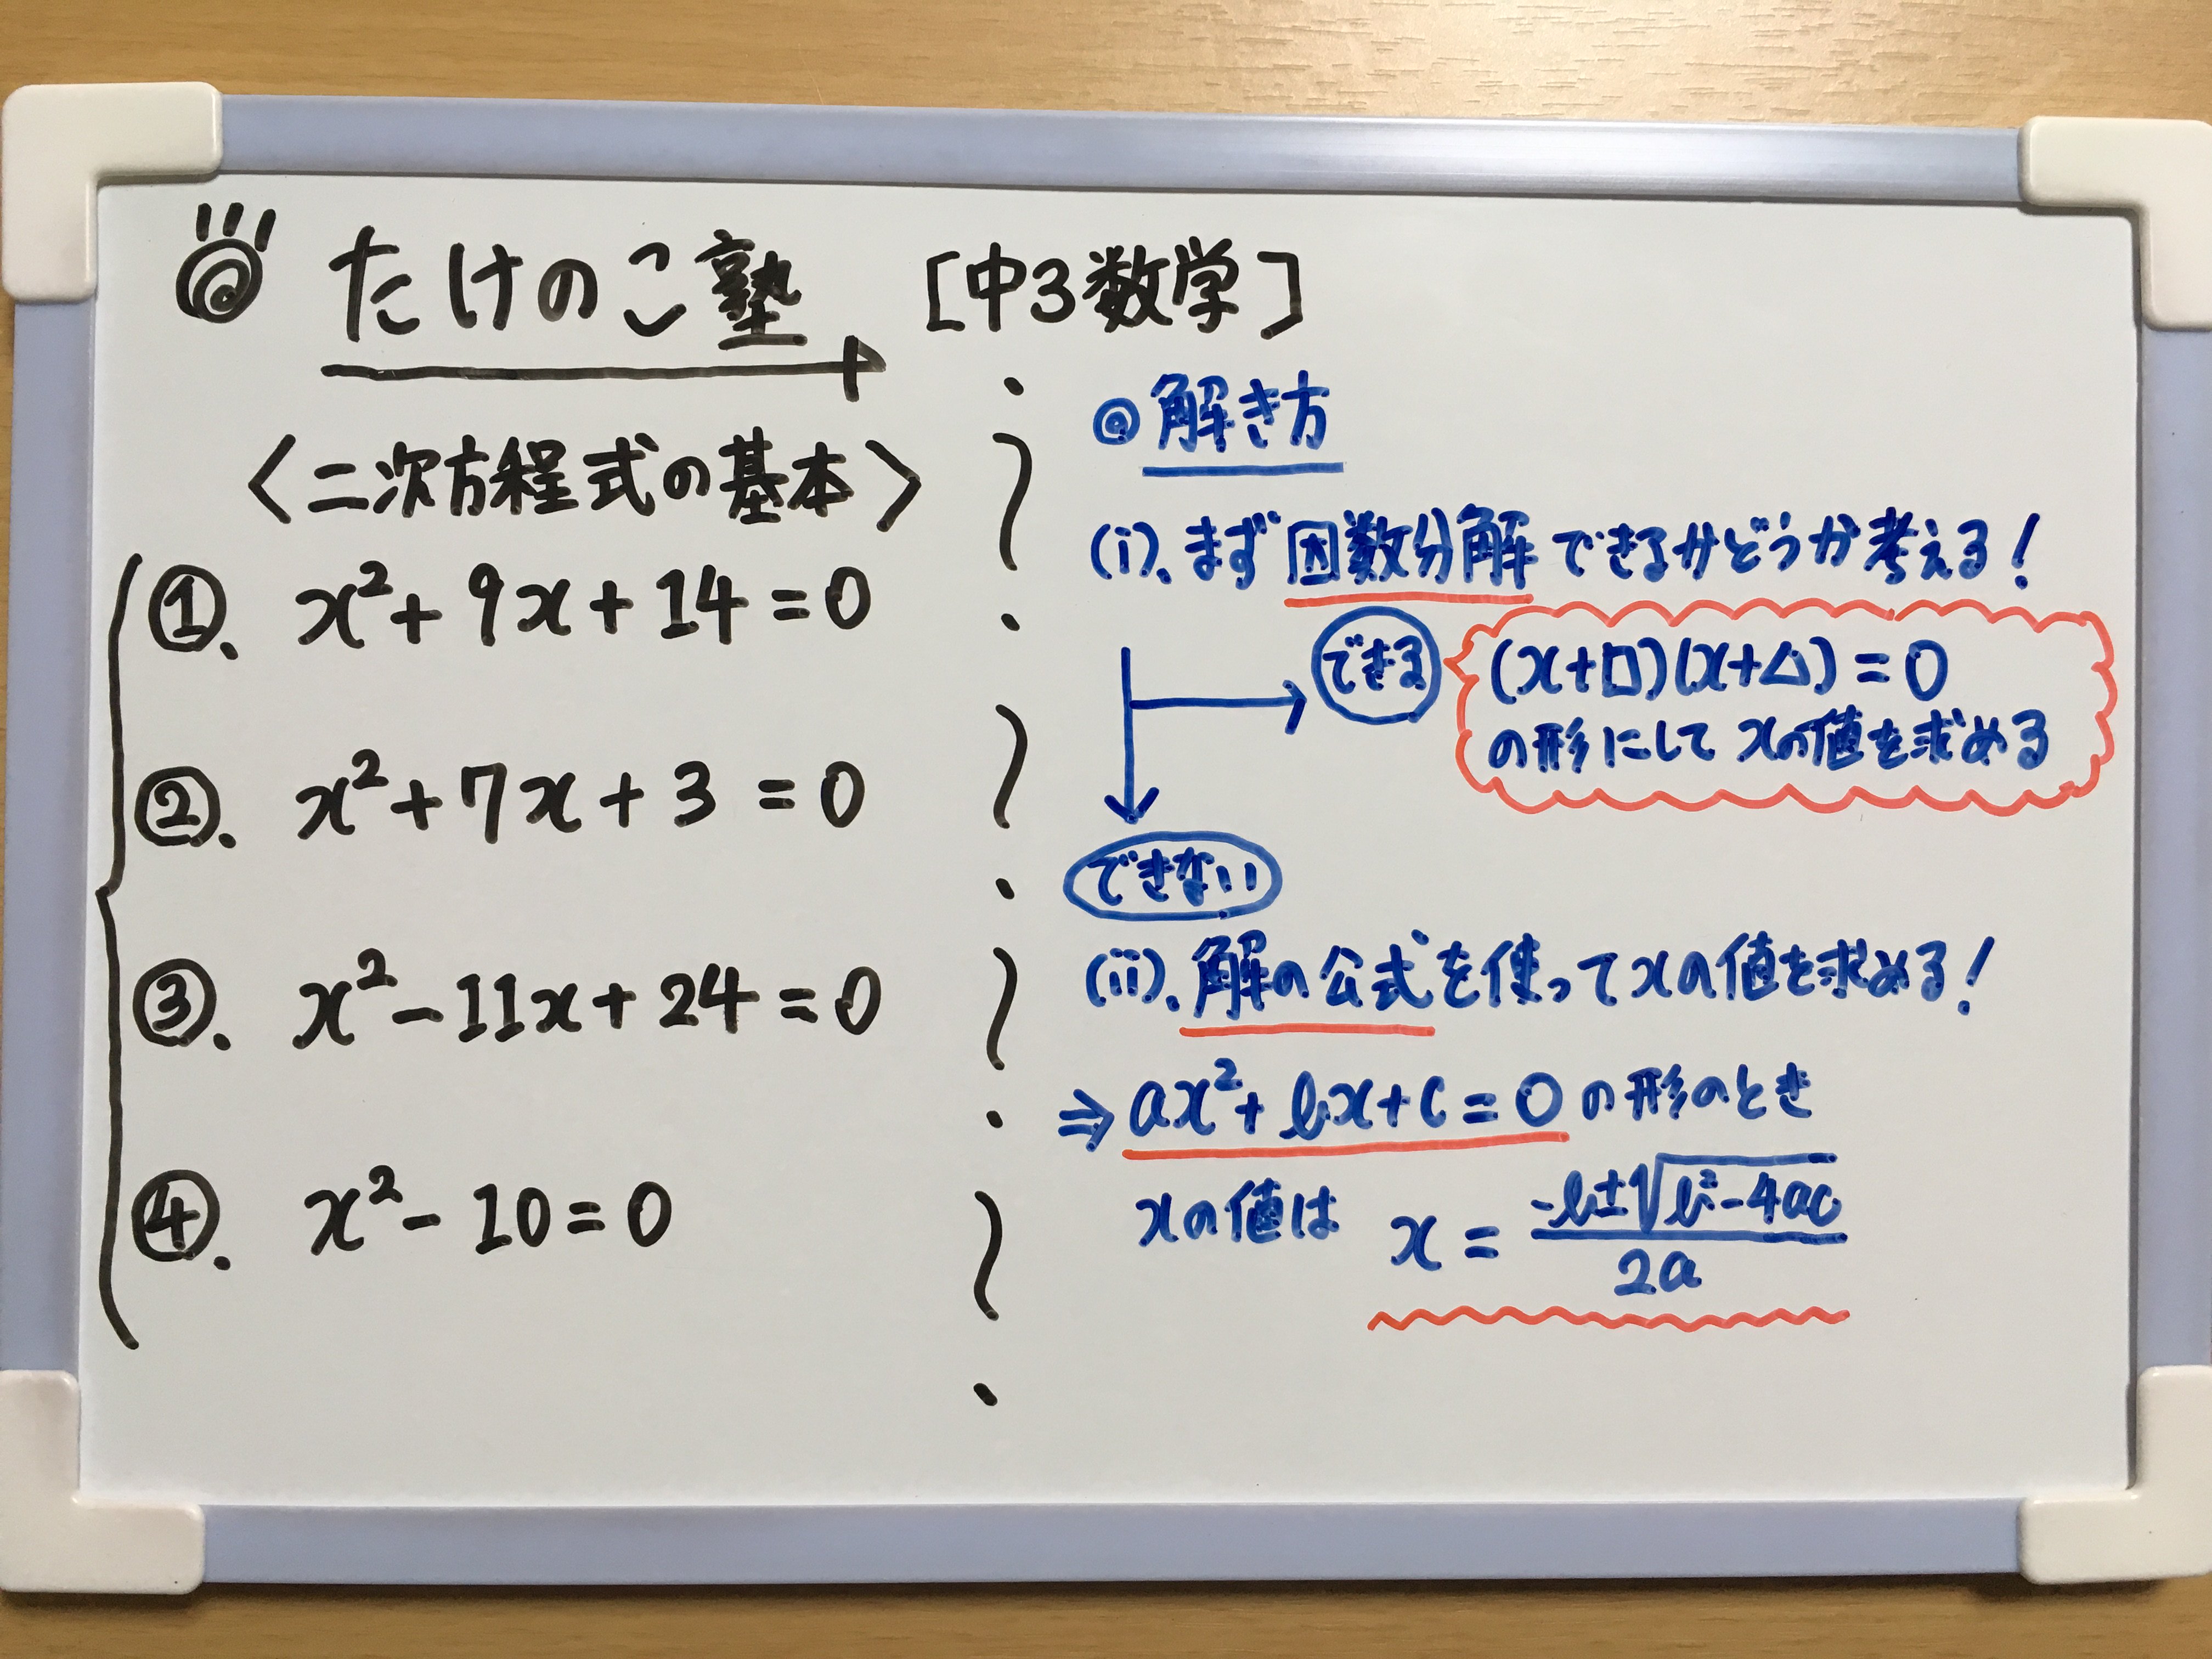 ◎ たけのこ塾 [中3数学]
<二次方程式の基本>
①. x²+9x+14=0
②. x²+7x+3=0
③. x²-11x+24=0
④. x²-10=0
◎解き方
(i). まず因数分解できるかどうか考える!
できる
(x+□)(x+△)=0
の形にしてxの値を求める
できない
(ii). 解の公式を使ってxの値を求める!
⇒ ax²+bx+c=0の形のとき
xの値は x = (-b±√(b²-4ac))/2a